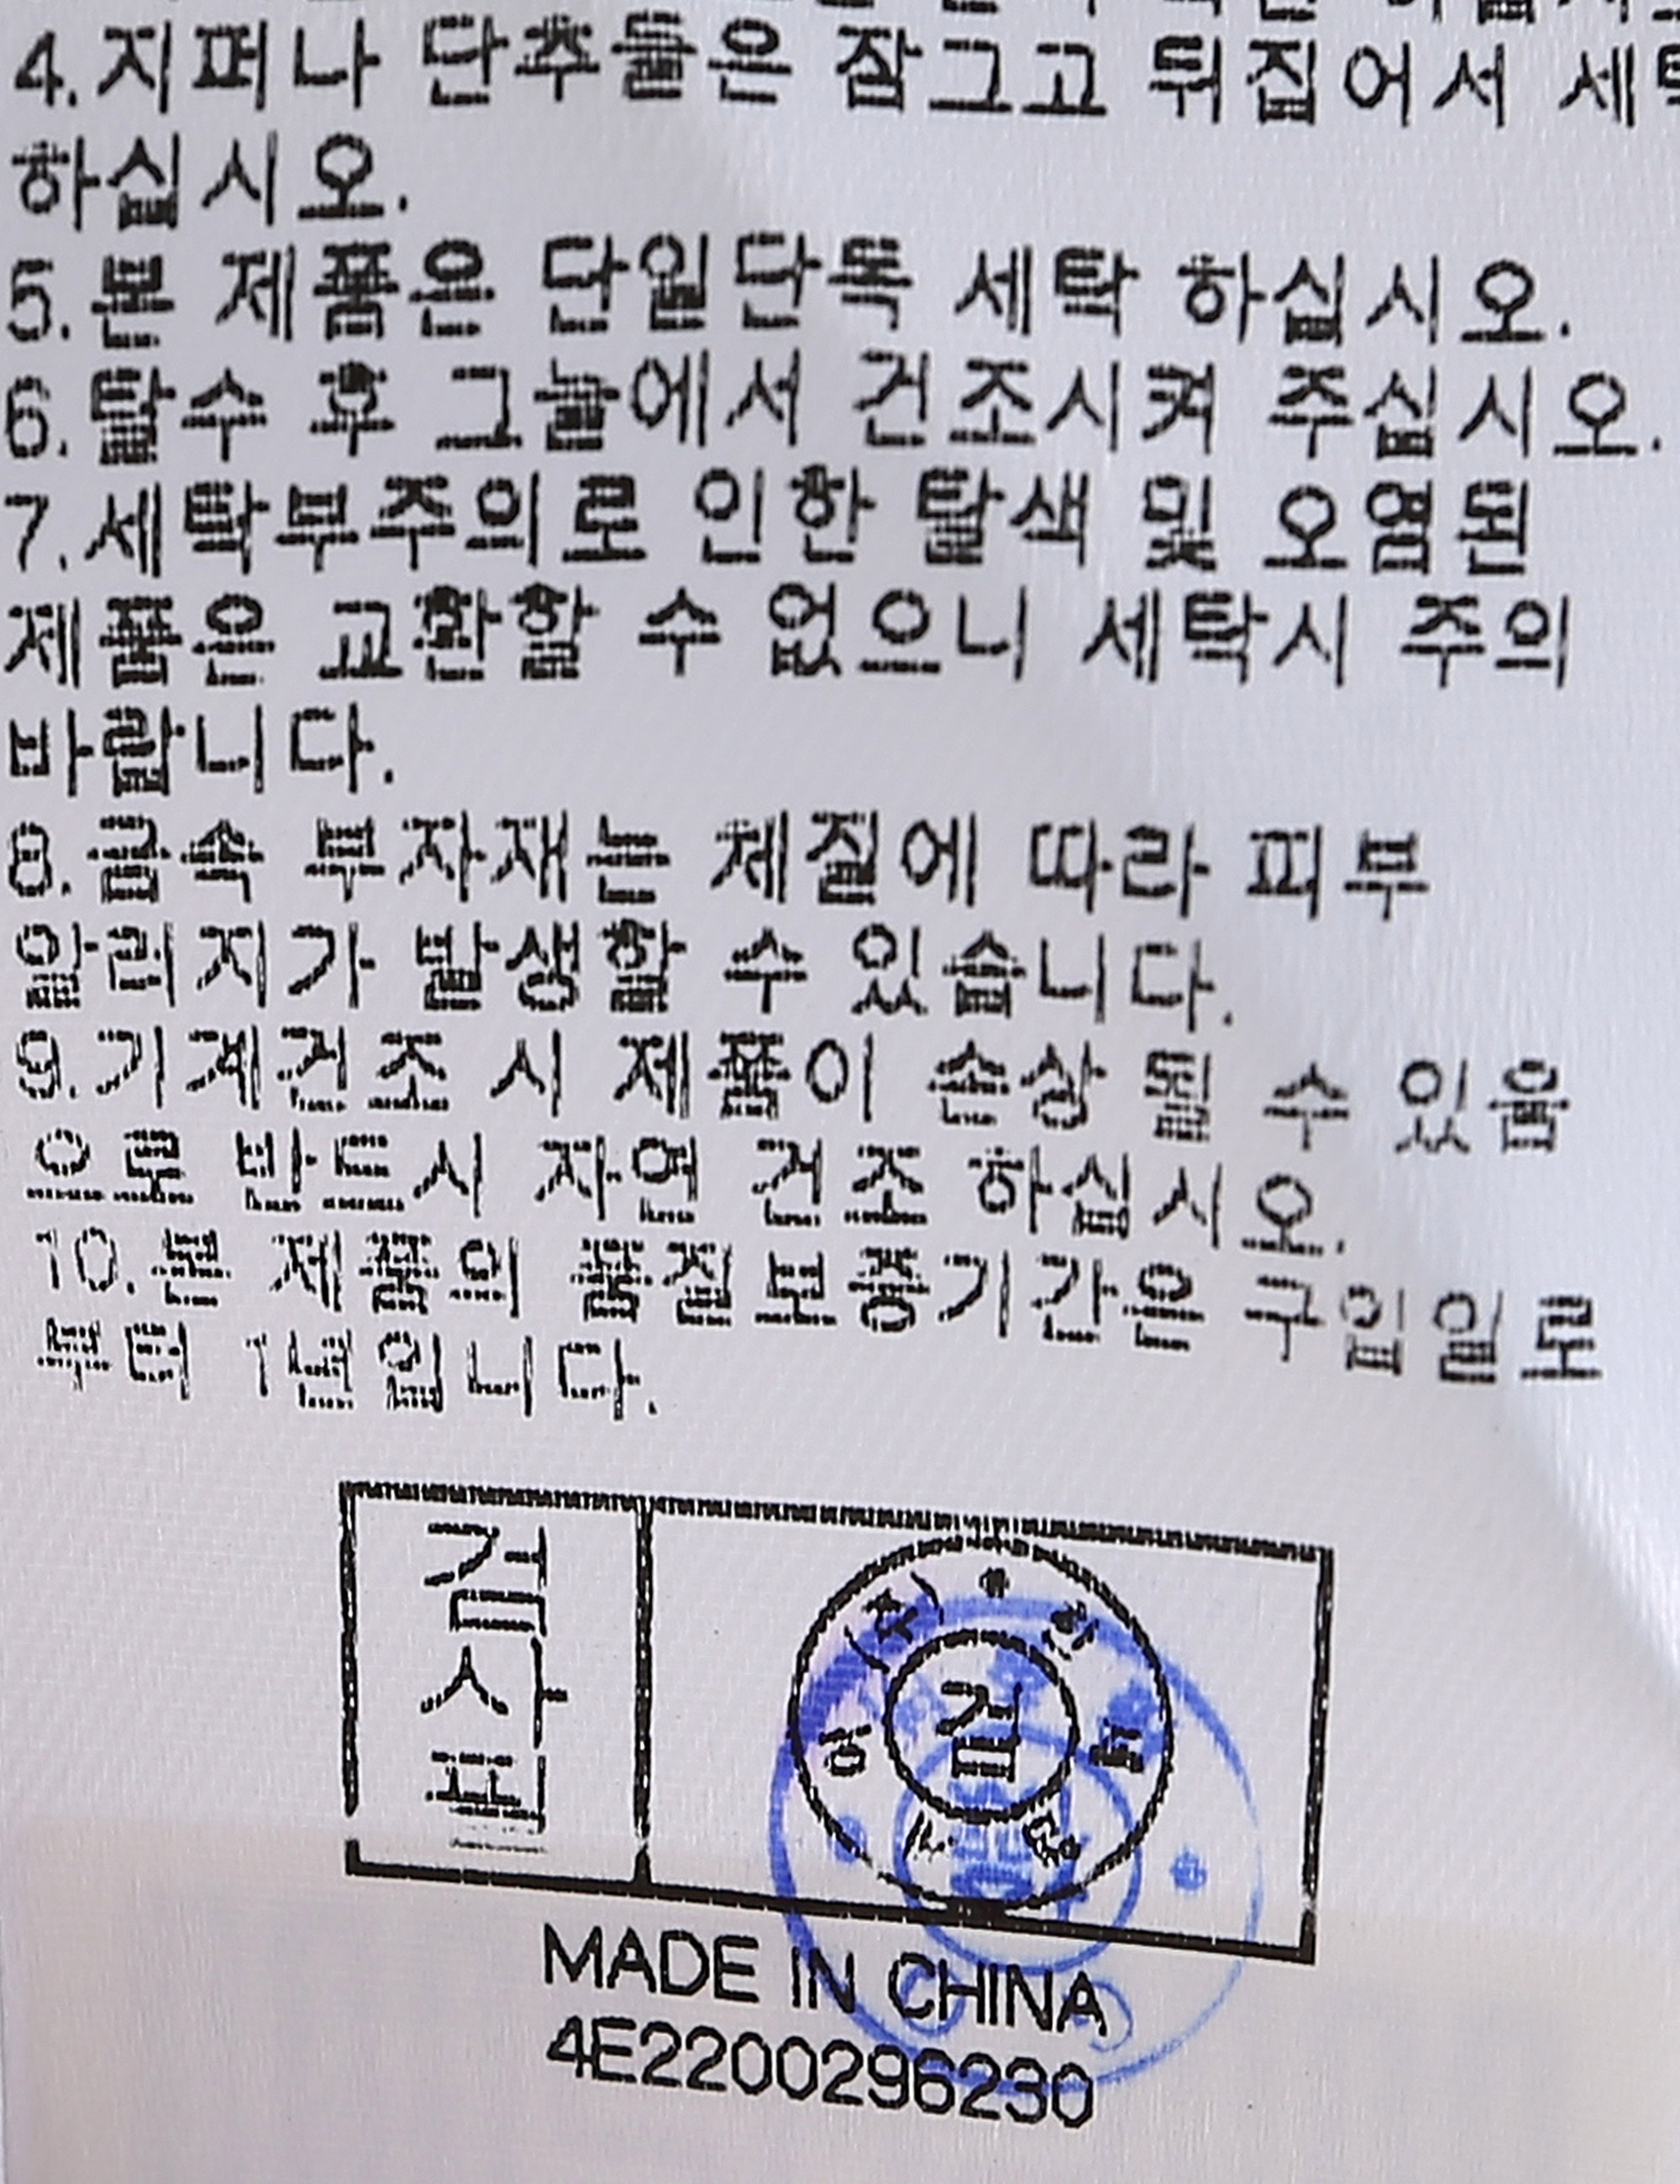 4.지퍼나 단추들은 잠그고 뒤집어서 세탁
하십시오.
5.본 제품은 단일단독 세탁 하십시오.
6.탈수 후 그늘에서 건조시켜 주십시오.
7.세탁부주의로 인한 탈색 및 오염된
제품은 교환할 수 없으니 세탁시 주의
바랍니다.
8.금속 부자재는 체질에 따라 피부
알러지가 발생할 수 있습니다.
9.기계건조 시 제품이 손상 될 수 있음
으로 반드시 자연 건조 하십시오.
10.본 제품의 품질보증기간은 구입일로
부터 1년입니다.
검사표
검
MADE IN CHINA
4E2200296230